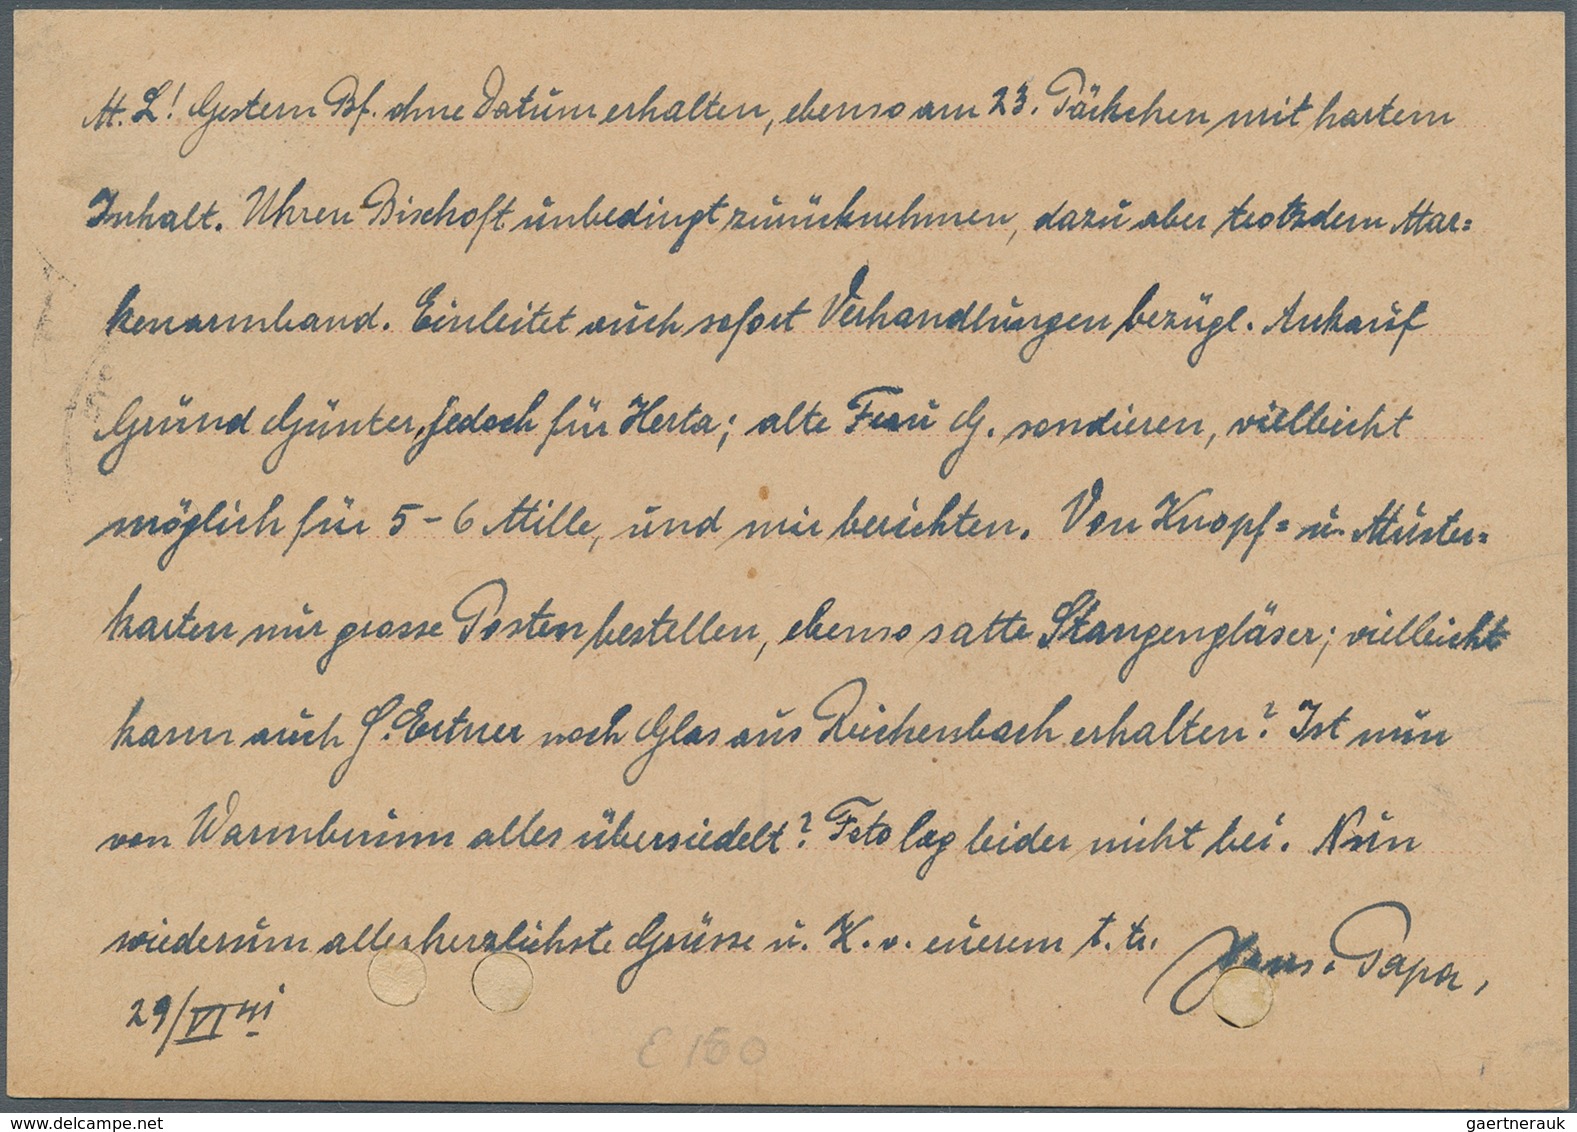 M. L! Gestern Bf. ohne Datum erhalten, ebenso am 23. Päckchen mit hartem
Inhalt. Uhren Bischoft unbedingt zurücknehmen, dazu aber trotzdem Mar=
kenarmband. Einleitet auch sofort Verhandlungen bezügl. Ankauf
Grund Günter, jedoch für Herta; alte Frau G. sondieren, vielleicht
möglich für 5-6 Mille, und mir berichten. Von Knopf= u. Muster=
karten nur grosse Posten bestellen, ebenso satte Stangengläser; vielleicht
kann auch Ertner noch Glas aus Reichenbach erhalten? Ist nun
von Warmbrunn alles übersiedelt? Foto lag leider nicht bei. Nun
wiederum allerherzlichste Grüsse u. K. v. euerem t. tr.
Hans-Papa,
29/VI 41
E 160
gaertnerauk